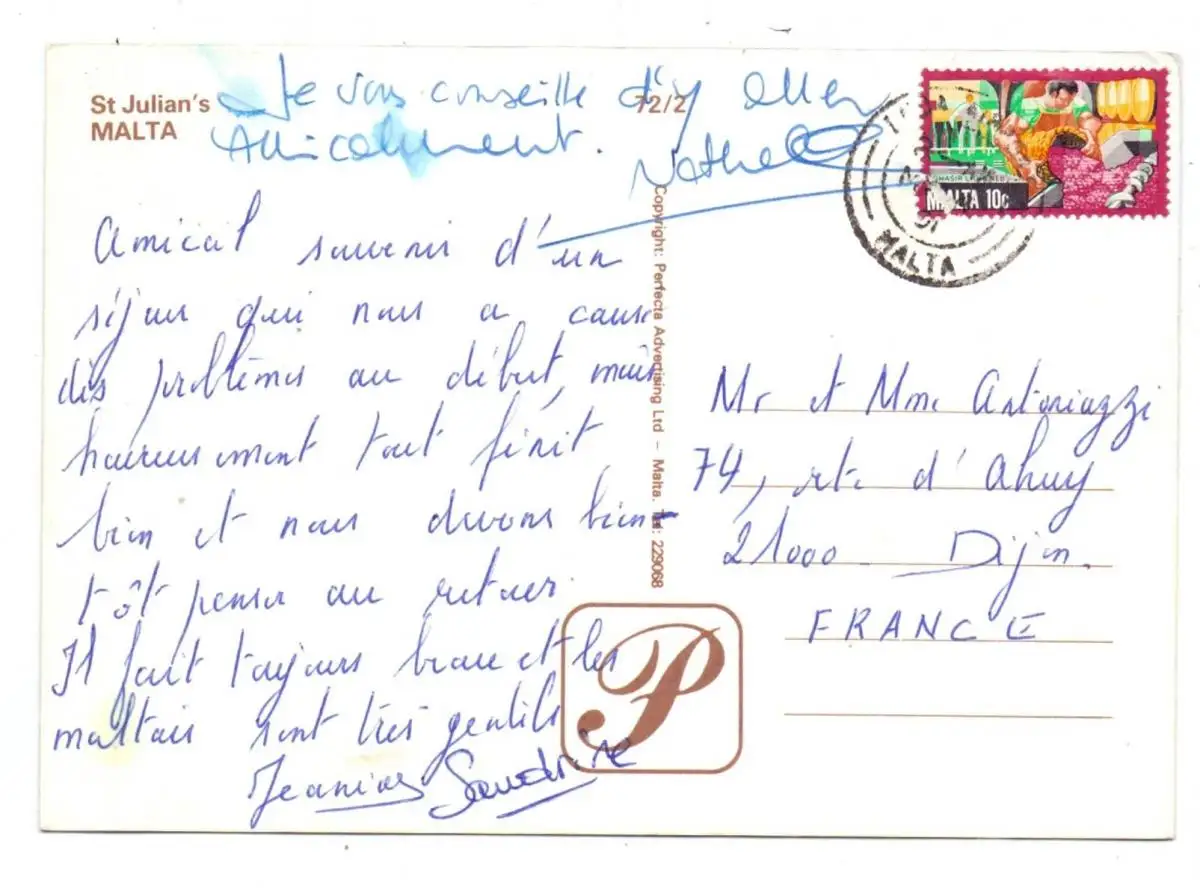 St Julian's
MALTA
72/2
Je vous conseille d'y aller
Amicalement.
Amical souvenir d'un
séjour qui nous a causé
des problèmes au début, mais
heureusement tout finit
bien et nous devons bien-
tôt penser au retour.
Il fait toujours beau et les
maltais sont très gentils
Sandrine
Copyright: Perfecta Advertising Ltd – Malta. Tel: 229068
P
MALTA 10c
MALTA
Mr et Mme Antoniazzi
74, rte d'Ahuy
21000 Dijon.
FRANCE